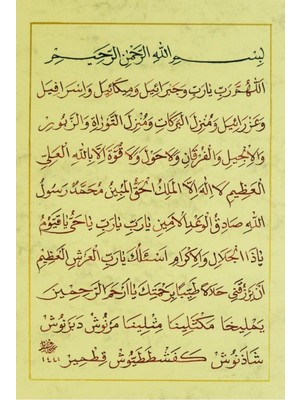 بسم الله الرحمن الرحيم
اللهم رب يا رب وجبرائيل وميكائيل واسرافيل
وعزرائيل ومنزل البركات ومنزل التوراة والزبور
والانجيل والفرقان ولا حول ولا قوة الا بالله العلي
العظيم لا اله الا الملك الحق المبين محمد رسول
الله صادق الوعد الامين يا رب يا رب يا حي يا قيوم
يا ذا الجلال والاكرام اسئلك يا رب العرش العظيم
ان يرزقني حلالا طيبا برحمتك يا ارحم الراحمين
يمليخا مكثلينا مثلينا مرنوش دبرنوش
شاذنوش كفشططيوش قطمير
١٤٤١